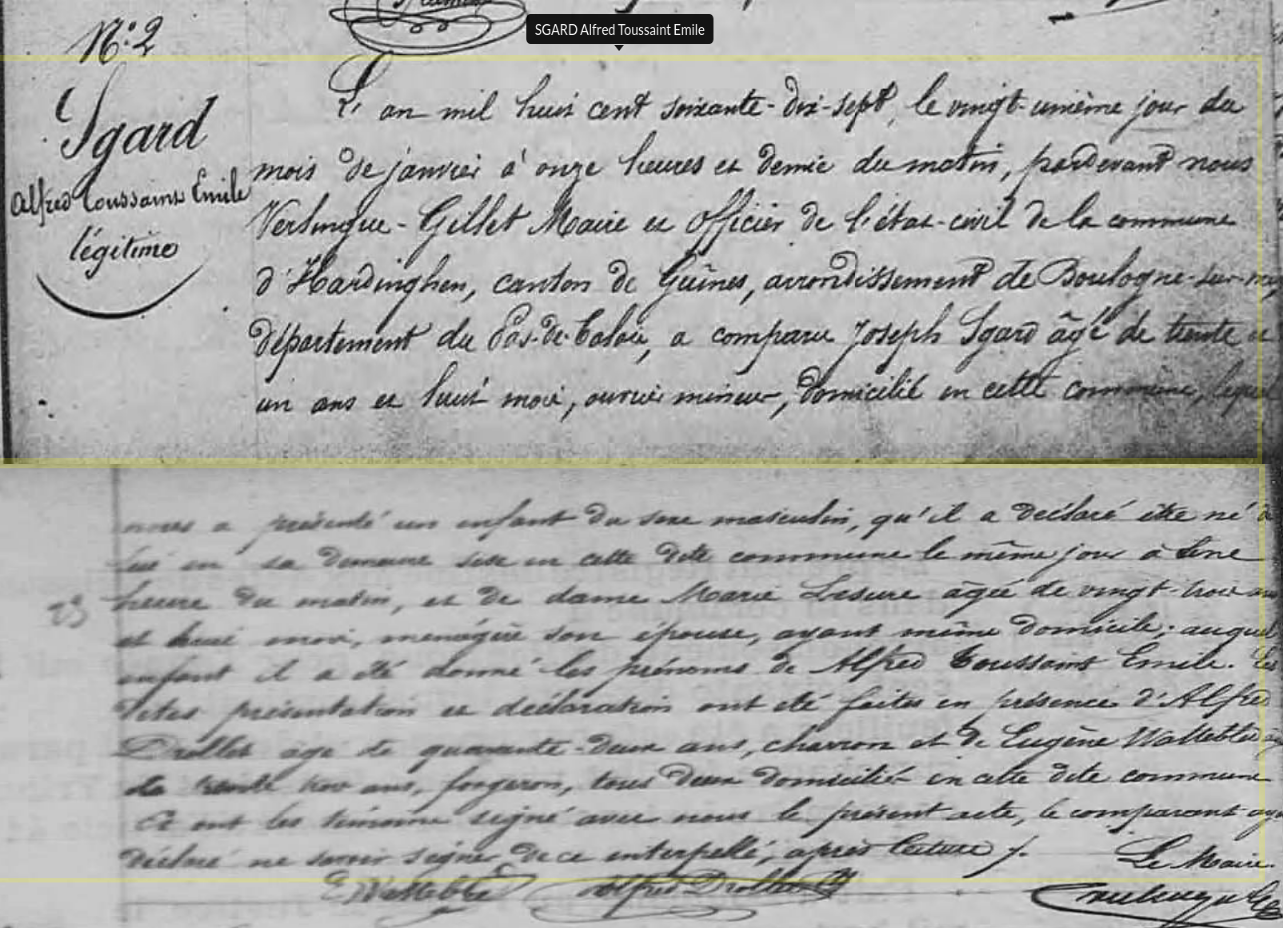 SGARD Alfred Toussaint Emile
N° 2
Sgard
Alfred Toussaint Emile
légitime
L'an mil huit cent soixante-dix-sept, le vingt-unième jour du
mois de janvier à onze heures et demie du matin, pardevant nous
Verlingue-Gillet Maire et officier de l'état-civil de la commune
d'Hardinghen, canton de Guînes, arrondissement de Boulogne-sur-mer,
département du Pas-de-Calais, a comparu Joseph Sgard âgé de trente et
un ans et huit mois, ouvrier mineur, domicilié en cette commune, lequel
nous a présenté un enfant du sexe masculin, qu'il a déclaré être né de
lui en sa demeure sise en cette dite commune le même jour à une
heure du matin, et de dame Marie Lesure âgée de vingt-trois ans
et huit mois, ménagère son épouse, ayant même domicile; auquel
enfant il a été donné les prénoms de Alfred Toussaint Emile. Les
dites présentation et déclaration ont été faites en présence d'Alfred
Drollet âgé de quarante-deux ans, charron et de Eugène Wattebled âgé
de trente trois ans, forgeron, tous deux domiciliés en cette dite commune
Et ont les témoins signé avec nous le présent acte, le comparant ayant
déclaré ne savoir signer, de ce interpellé, après lecture /.
Le Maire.
E Wattebled Alfred Drollet